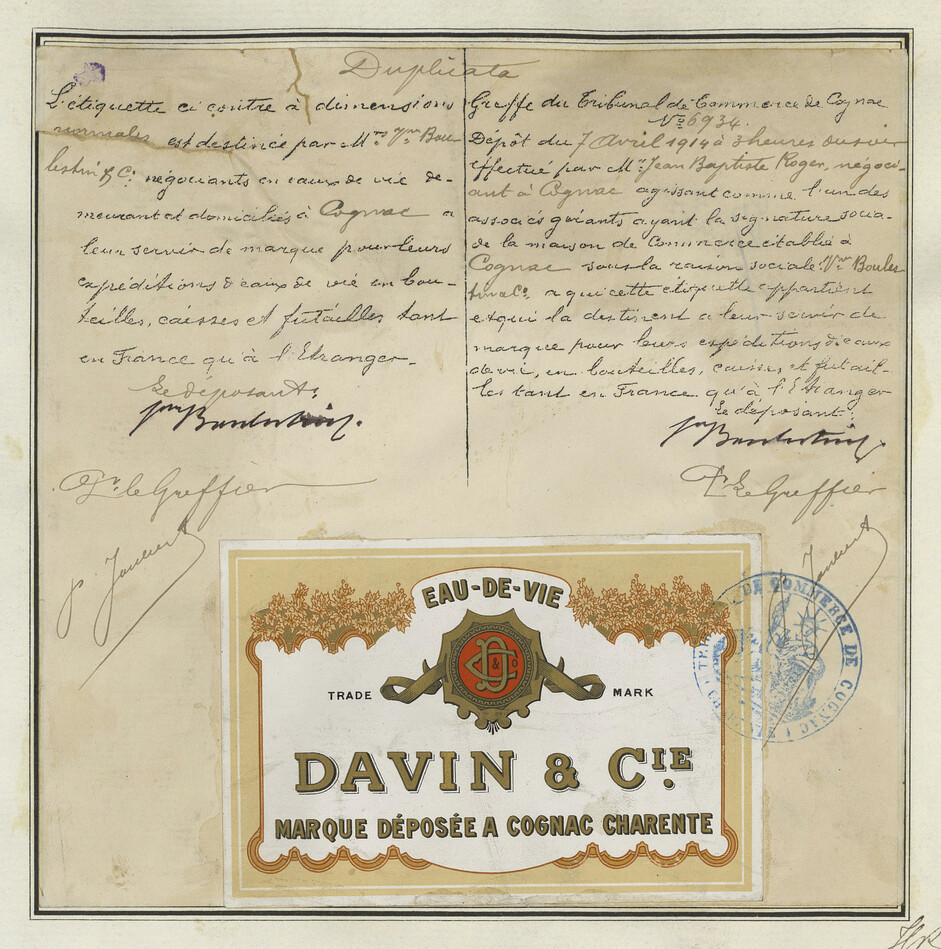 Duplicata
L'étiquette ci contre à dimensions
normales est destinée par Mrs Vor Bou
lestin & Cie négociants en eaux de vie de-
meurant et domiciliés à Cognac a
leur servir de marque pour leurs
expéditions d'eaux de vie en bou-
teilles, caisses et futailles tant
en France qu'à l'Etranger-
Le déposant:
Boulestin
Pr. le Greffier
Greffe du Tribunal de Commerce de Cognac
No 6934.
Dépôt du 7 Avril 1914 à 3 heures du soir
effectué par Mr. Jean Baptiste Roger, négoci-
ant à Cognac agissant comme l'un des
associés gérants ayant la signature socia-
de la maison de Commerce établie à
Cognac sous la raison sociale Vor Boules
tin & Co. a qui cette étiquette appartient
et qui la destinent a leur servir de
marque pour leurs expéditions d'eaux
de vie, en bouteilles, caisses, et futail-
les tant en France qu'à l'Etranger
Le déposant:
Boulestin
Pr. Le Greffier
EAU-DE-VIE
D & Co
TRADE MARK
DAVIN & CIE
MARQUE DÉPOSÉE A COGNAC CHARENTE
DE COMMERCE DE COGNAC